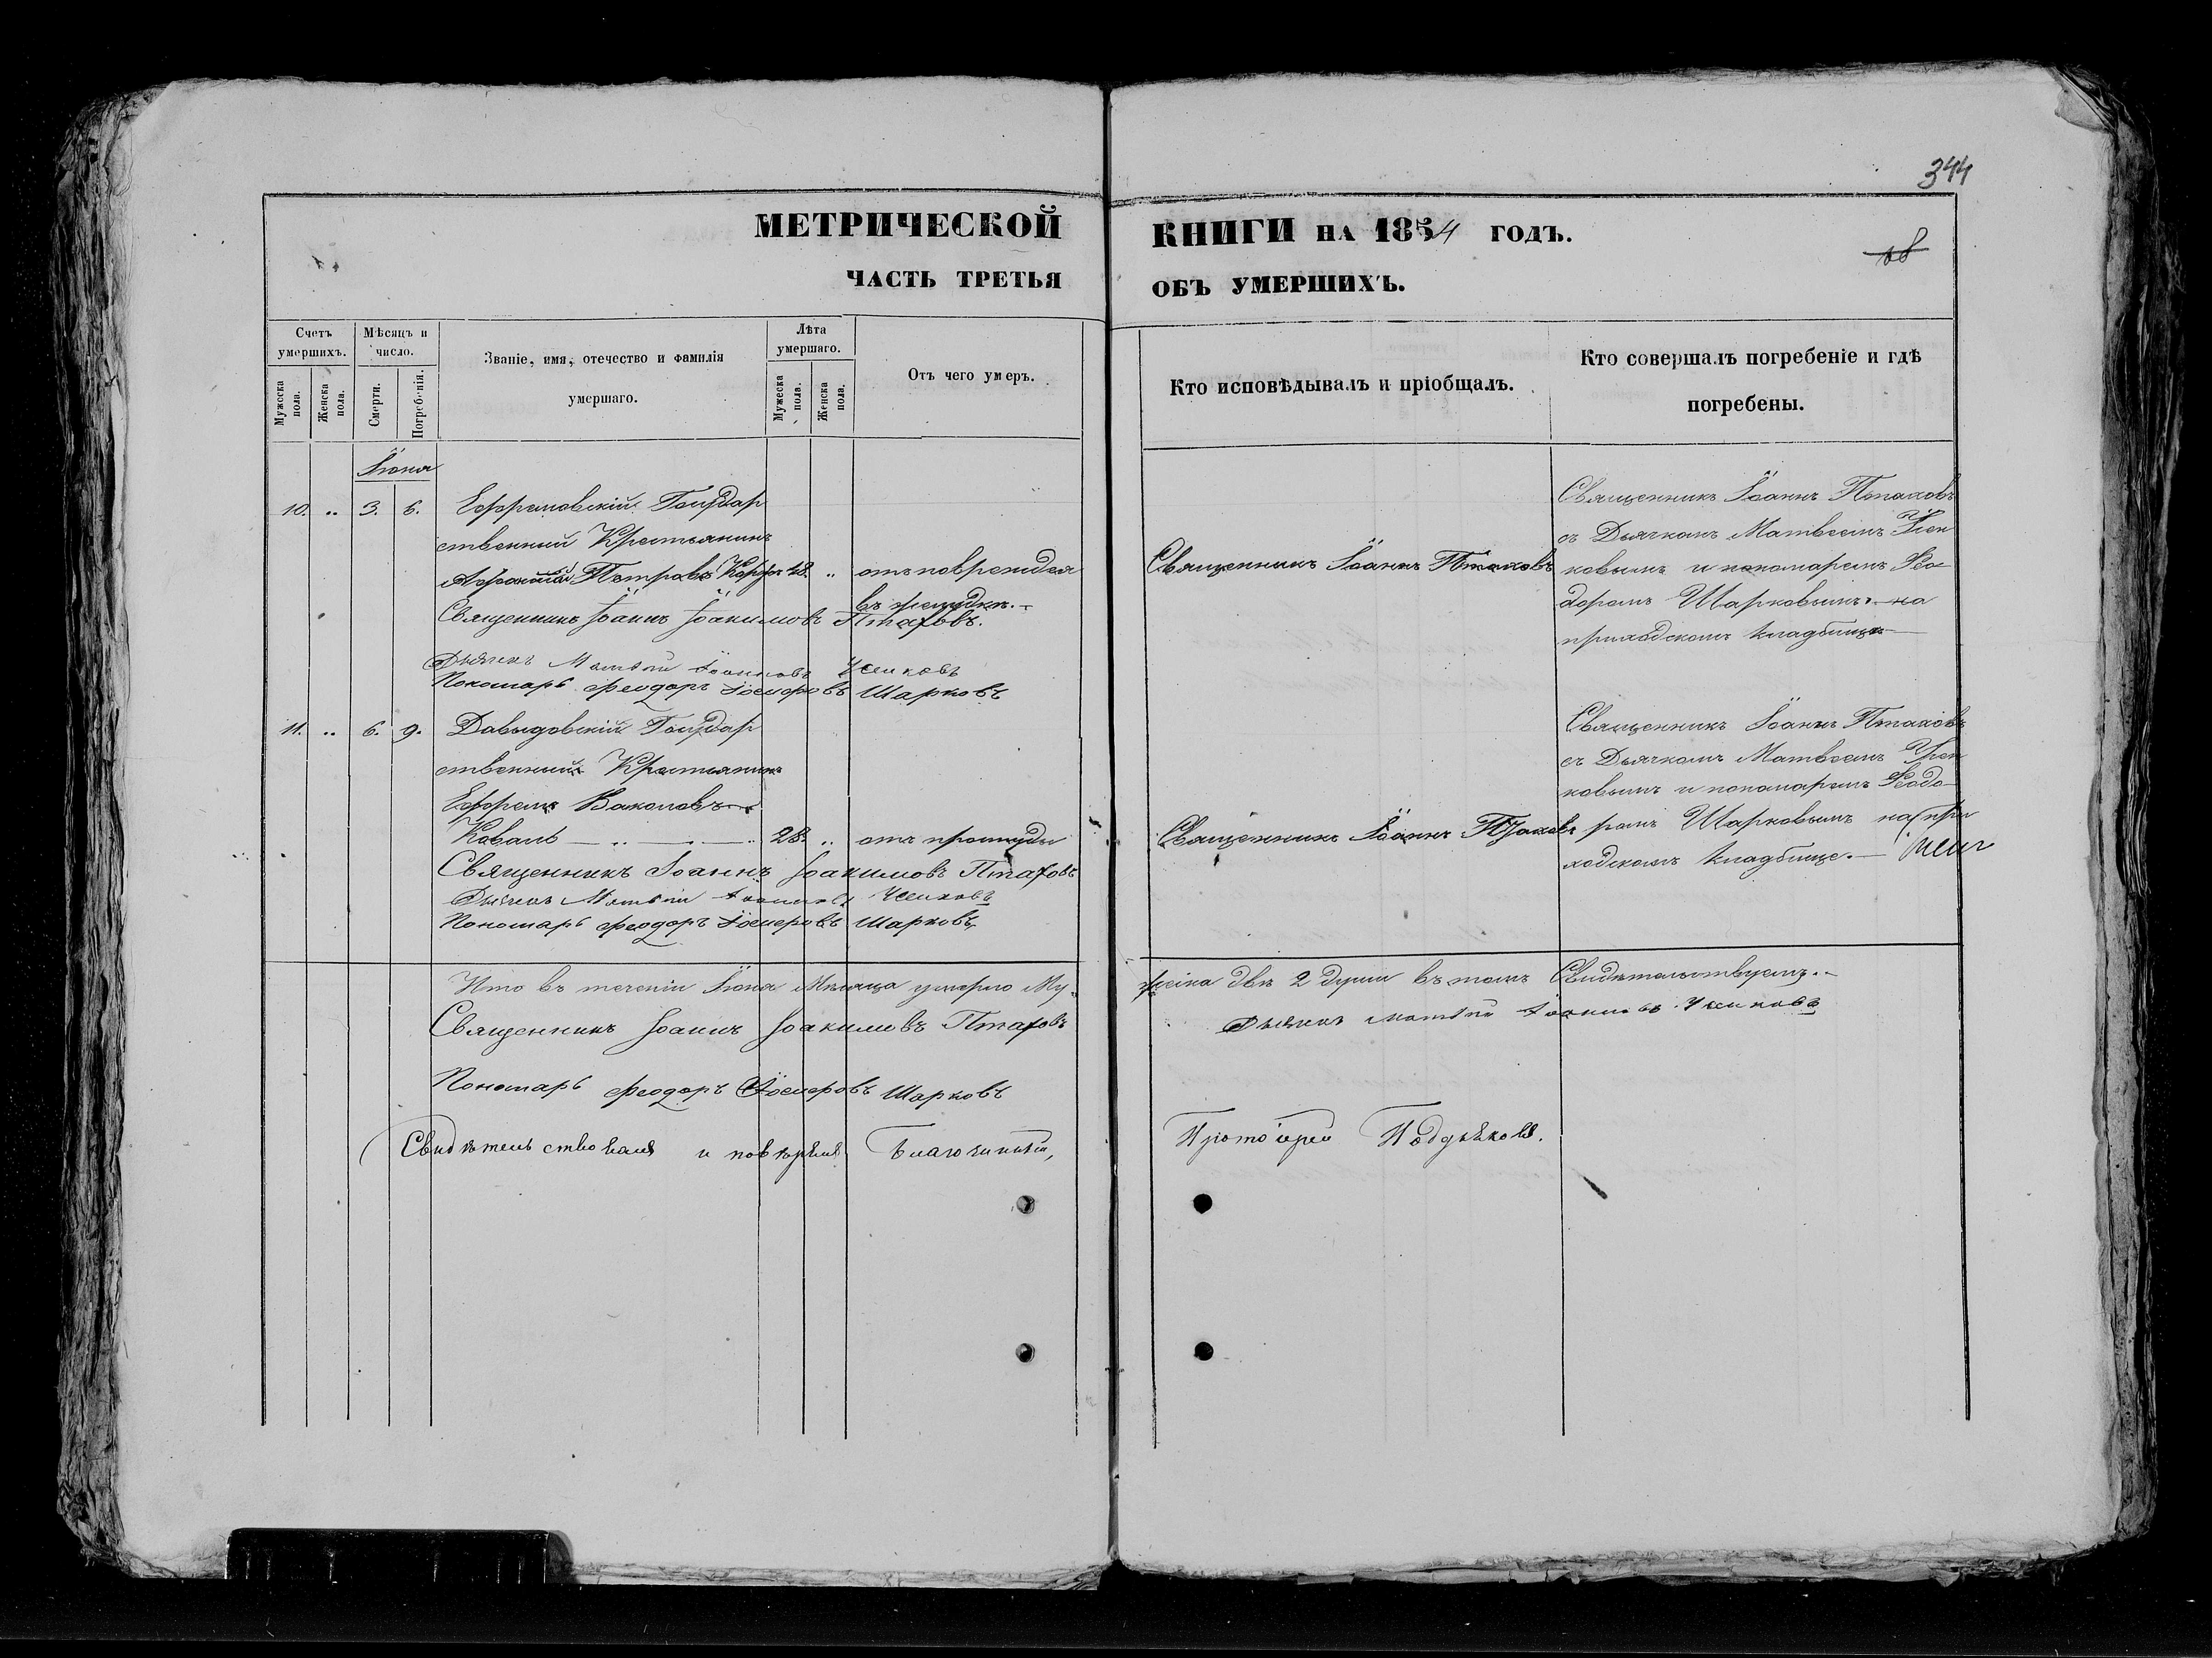 344
МЕТРИЧЕСКОЙ
ЧАСТЬ ТРЕТЬЯ
КНИГИ НА 1854 ГОДЪ.
ОБЪ УМЕРШИХЪ.
Счетъ умершихъ.
Мужеска пола.
Женска пола.
Мѣсяцъ и число.
Смерти.
Погребенія.
Званіе, имя, отечество и фамилія
умершаго.
Лѣта умершаго.
Мужеска пола.
Женска пола.
Отъ чего умеръ.
Кто исповѣдывалъ и пріобщалъ.
Кто совершалъ погребеніе и гдѣ
погребены.
Іюня
10. „ 3. 6. Ефремовскій Государ
ственный Крестьянинъ
Петровъ 48. „ отъ поврежден
въ желудкѣ.
Священникъ Іоаннъ Іоакимовъ Птаховъ.
Дьячекъ Матѳій Іоанновъ Усиковъ
Пономарь Феодоръ Шарковъ
Священникъ Іоаннъ Птаховъ
Священникъ Іоаннъ Птаховъ
съ Дьячкомъ Матвеемъ Усен
ковымъ и пономаремъ Фео
доромъ Шарковымъ на
приходскомъ кладбищѣ
11. „ 6. 9. Давыдовскій Государ
ственный Крестьянинъ
ЕфремъВаколовъ
Коваль 28. „ отъ простуды
Священникъ Іоаннъ Іоакимовъ Птаховъ
Дьячекъ Матѳій Іоанновъ Усиковъ
Пономарь Феодоръ Шарковъ
Священникъ Іоаннъ Птаховъ
Священникъ Іоаннъ Птаховъ
съ Дьячкомъ Матвеемъ Усен
ковымъ и пономаремъ Феодо
ромъ Шарковымъ на при
ходскомъ кладбище.
Что въ теченіи Іюня Мѣсяца умерло Му
жеска двѣ 2 души въ томъ Свидѣтельствуемъ.
Священникъ Іоаннъ Іоакимовъ Птаховъ
Дьячекъ Матѳій Іоанновъ Усиковъ
Пономарь Феодоръ Шарковъ
Свидѣтельствовалъ и повѣрялъ Благочинный,
Протоіерей Поддьяковъ.